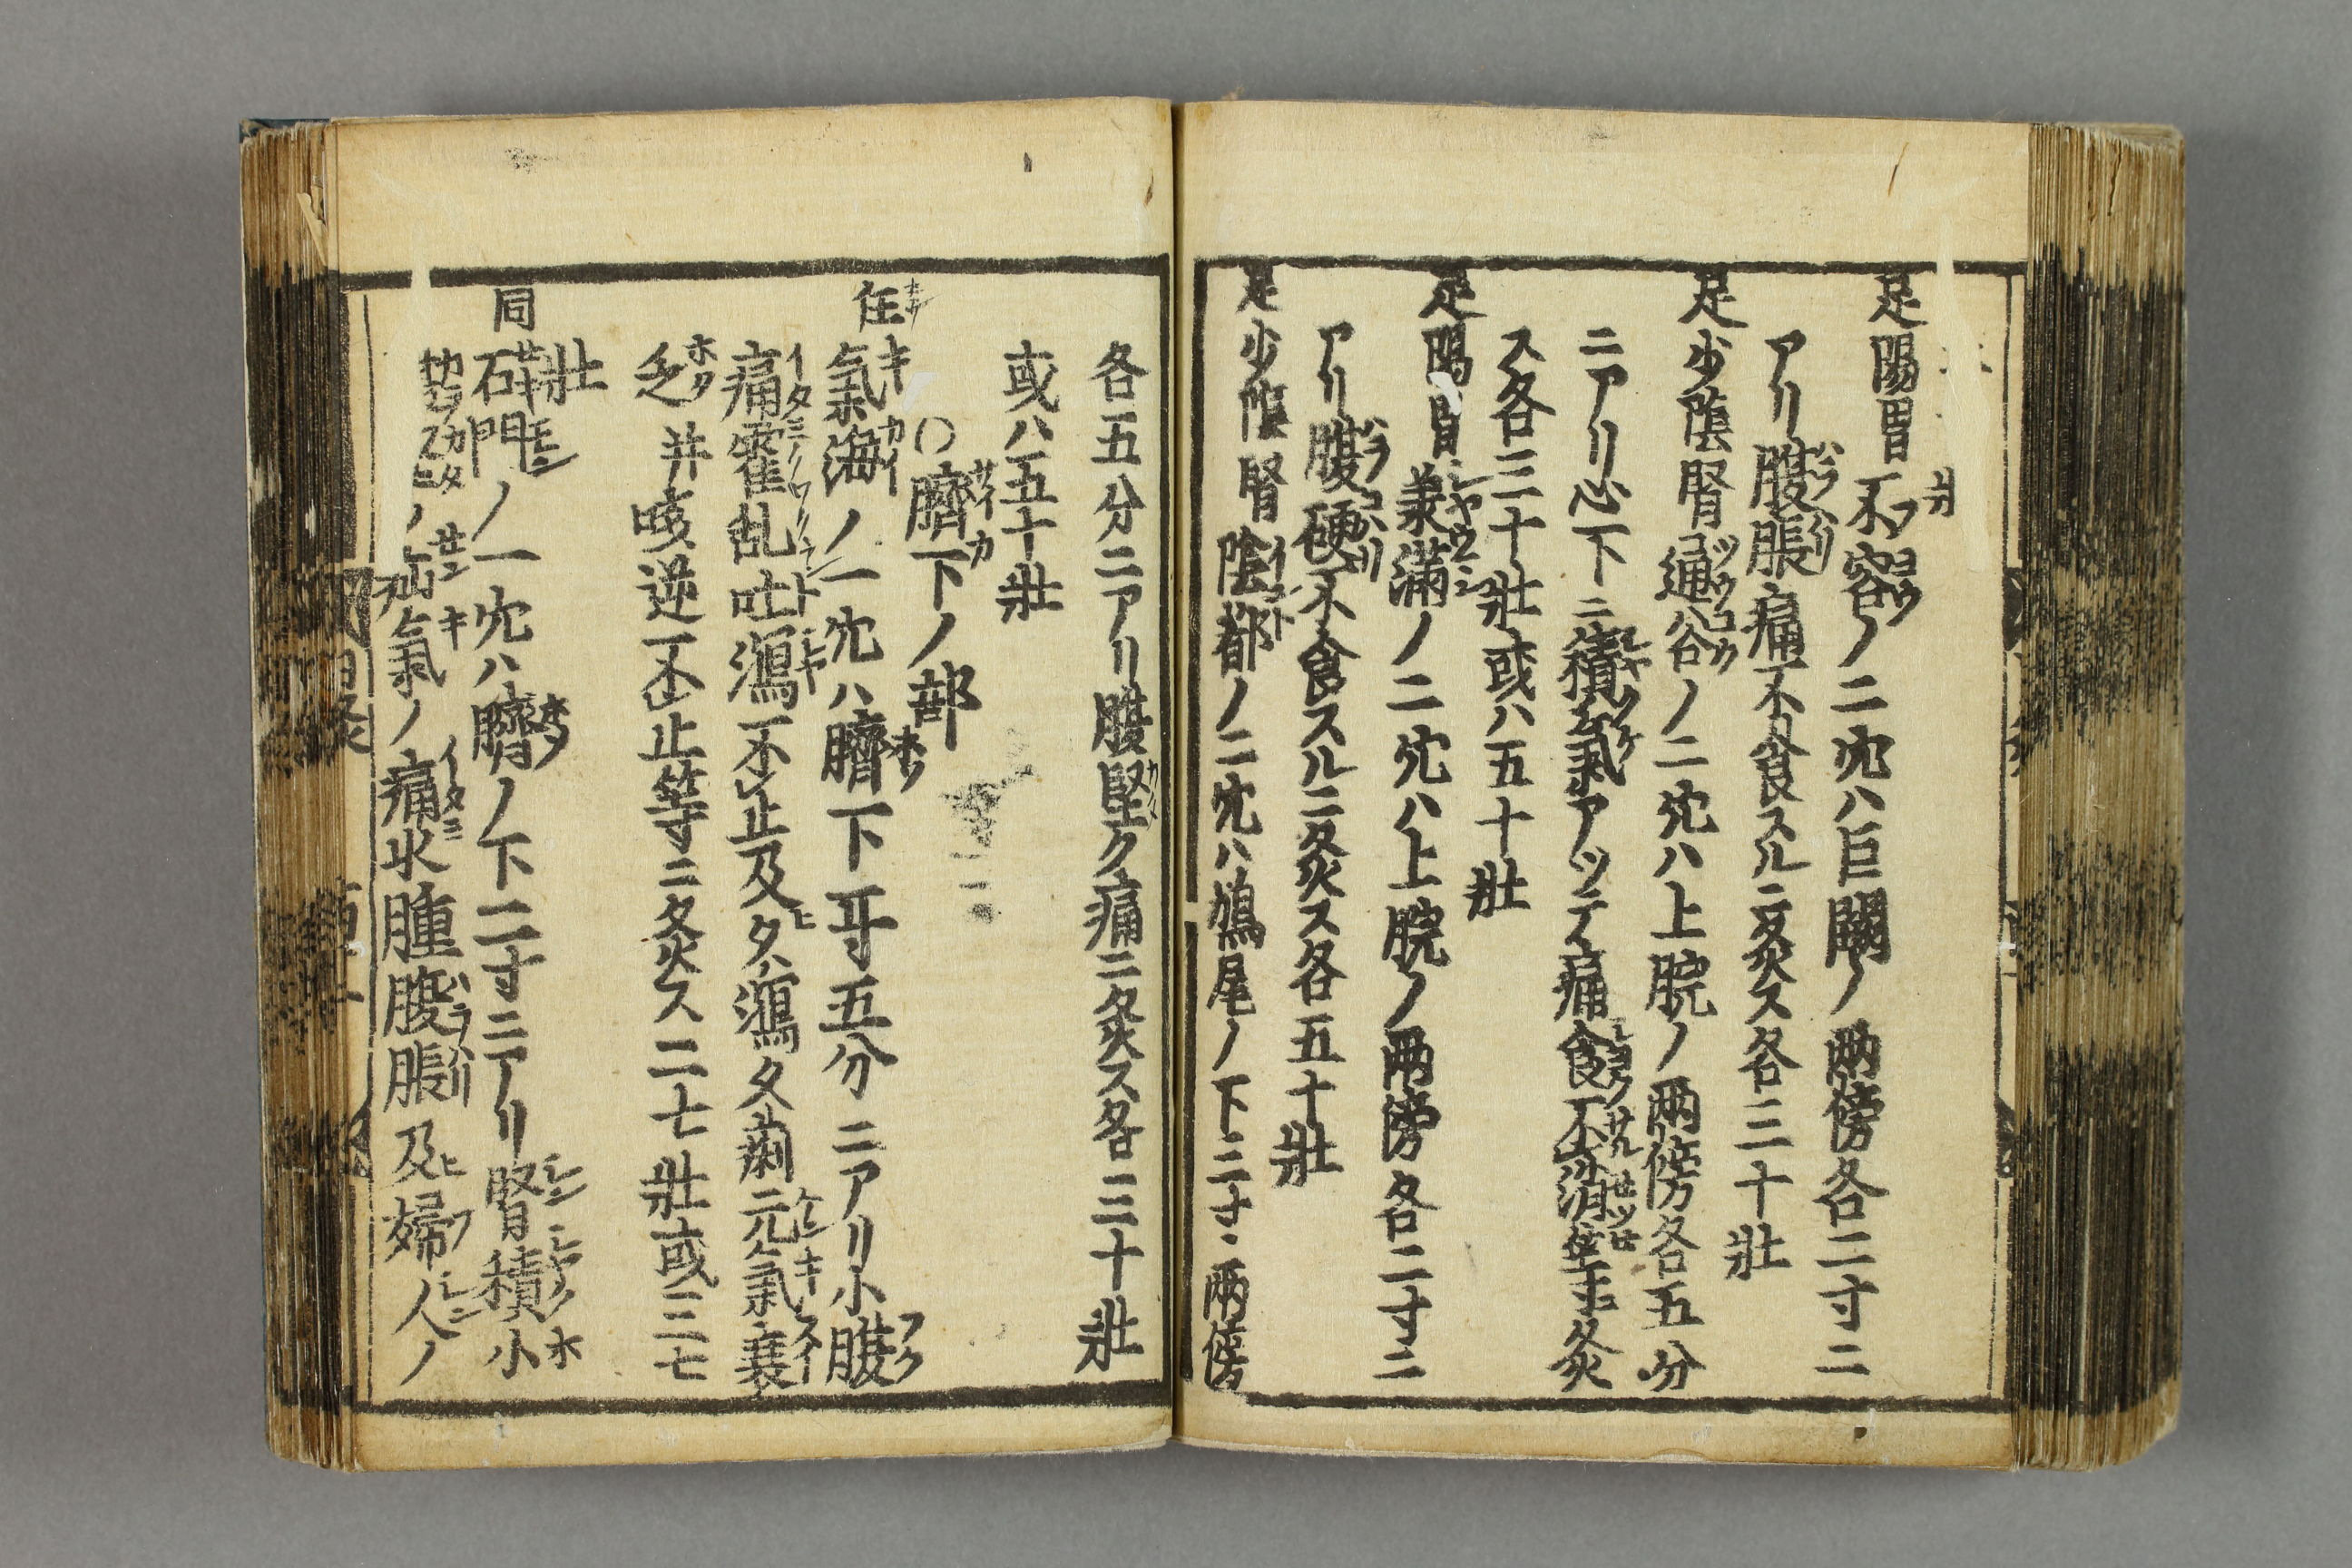 壯
足陽胃 不容ノ二穴ハ巨闕ノ兩傍各二寸ニ
アリ腹脹痛不食スルニ灸ス各三十壯
足少陰腎 通谷ノ二穴ハ上脘ノ兩傍各五分
ニアリ心下ニ積氣アッテ痛食不消
ス各三十壯或ハ五十壯
足陽胃 兼滿ノ二穴ハ上脘ノ兩傍各二寸ニ
アリ腹硬不食スルニ灸ス各五十壯
足少陰腎 陰都ノ二穴ハ鳩尾ノ下三寸兩傍
各五分ニアリ腹堅ク痛ニ灸ス各三十壯
或ハ五十壯
○臍下ノ部
任 氣海ノ一穴ハ臍下一寸五分ニアリ小腹
痛霍乱吐瀉不止及タハ瀉タ痢元氣衰
乏并咳逆不止等ニ灸ス二七壯或三七
壯
同 石門ノ一穴ハ臍ノ下二寸ニアリ腎積小
ノ疝氣ノ痛水腫腹脹及婦人ノ